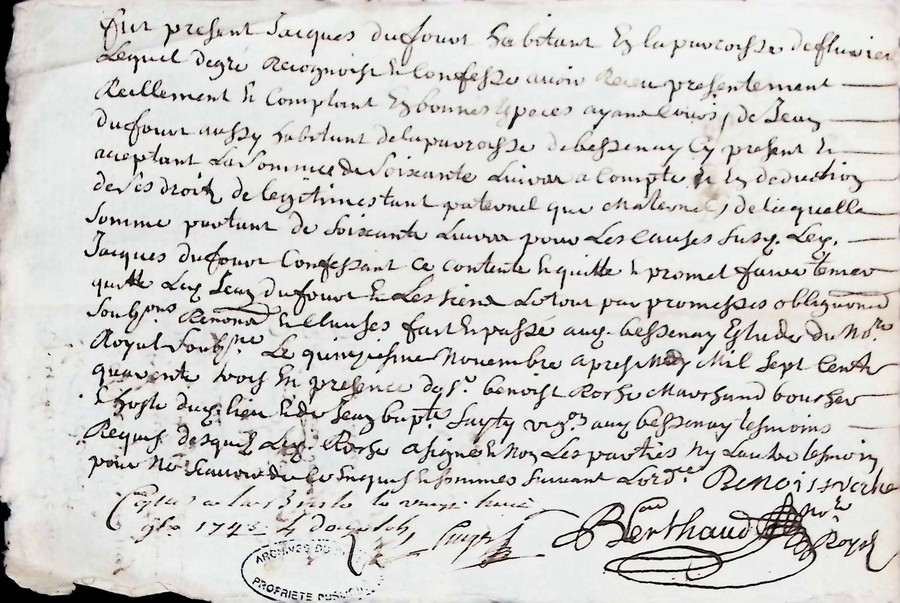 fut present Jacques dufour habitant en la parroisse de fluvier
Lequel de gré Recognoist & Confesse avoir Receu presentement
Reellement & Comptant En bonnes Espèces ayant Cours, de Jean
dufour aussy habitant de la parroisse de bessenay Cy present &
aceptant La Somme de Soixante Livres a Compte & En deduction
de ses droitz de legitimes tant paternel que Maternel, de laquelle
Somme partant de Soixante Livres pour Les Causes Susd. Led.
Jacques dufour Confessant Ce contente & quitte & promet faire tenir
quitte Led. Jean dufour & Les siens Le tout par promesses obligaons
Soubzons Renonaons & Clauses fait & passé aud. bessenay Estude du Nore
Royal Soubsne Le quinziesme Novembre apres Midy Mil Sept Centz
quarente trois En presence de Sr. benoist Roche Marchand boucher
& hoste dud. lieu & de Jean bapte vign aud bessenay tesmoins
Requis desquelz Led. Roche a signé & Non Les parties Ny Lautre tesmoin
pour Ne Scavoir de Ce Enquis & sommes suivant Lordce Benois Roche
Berthaud Nore Royal
1743
ARCHIVES DU
PROPRIETE PUBLIQUE